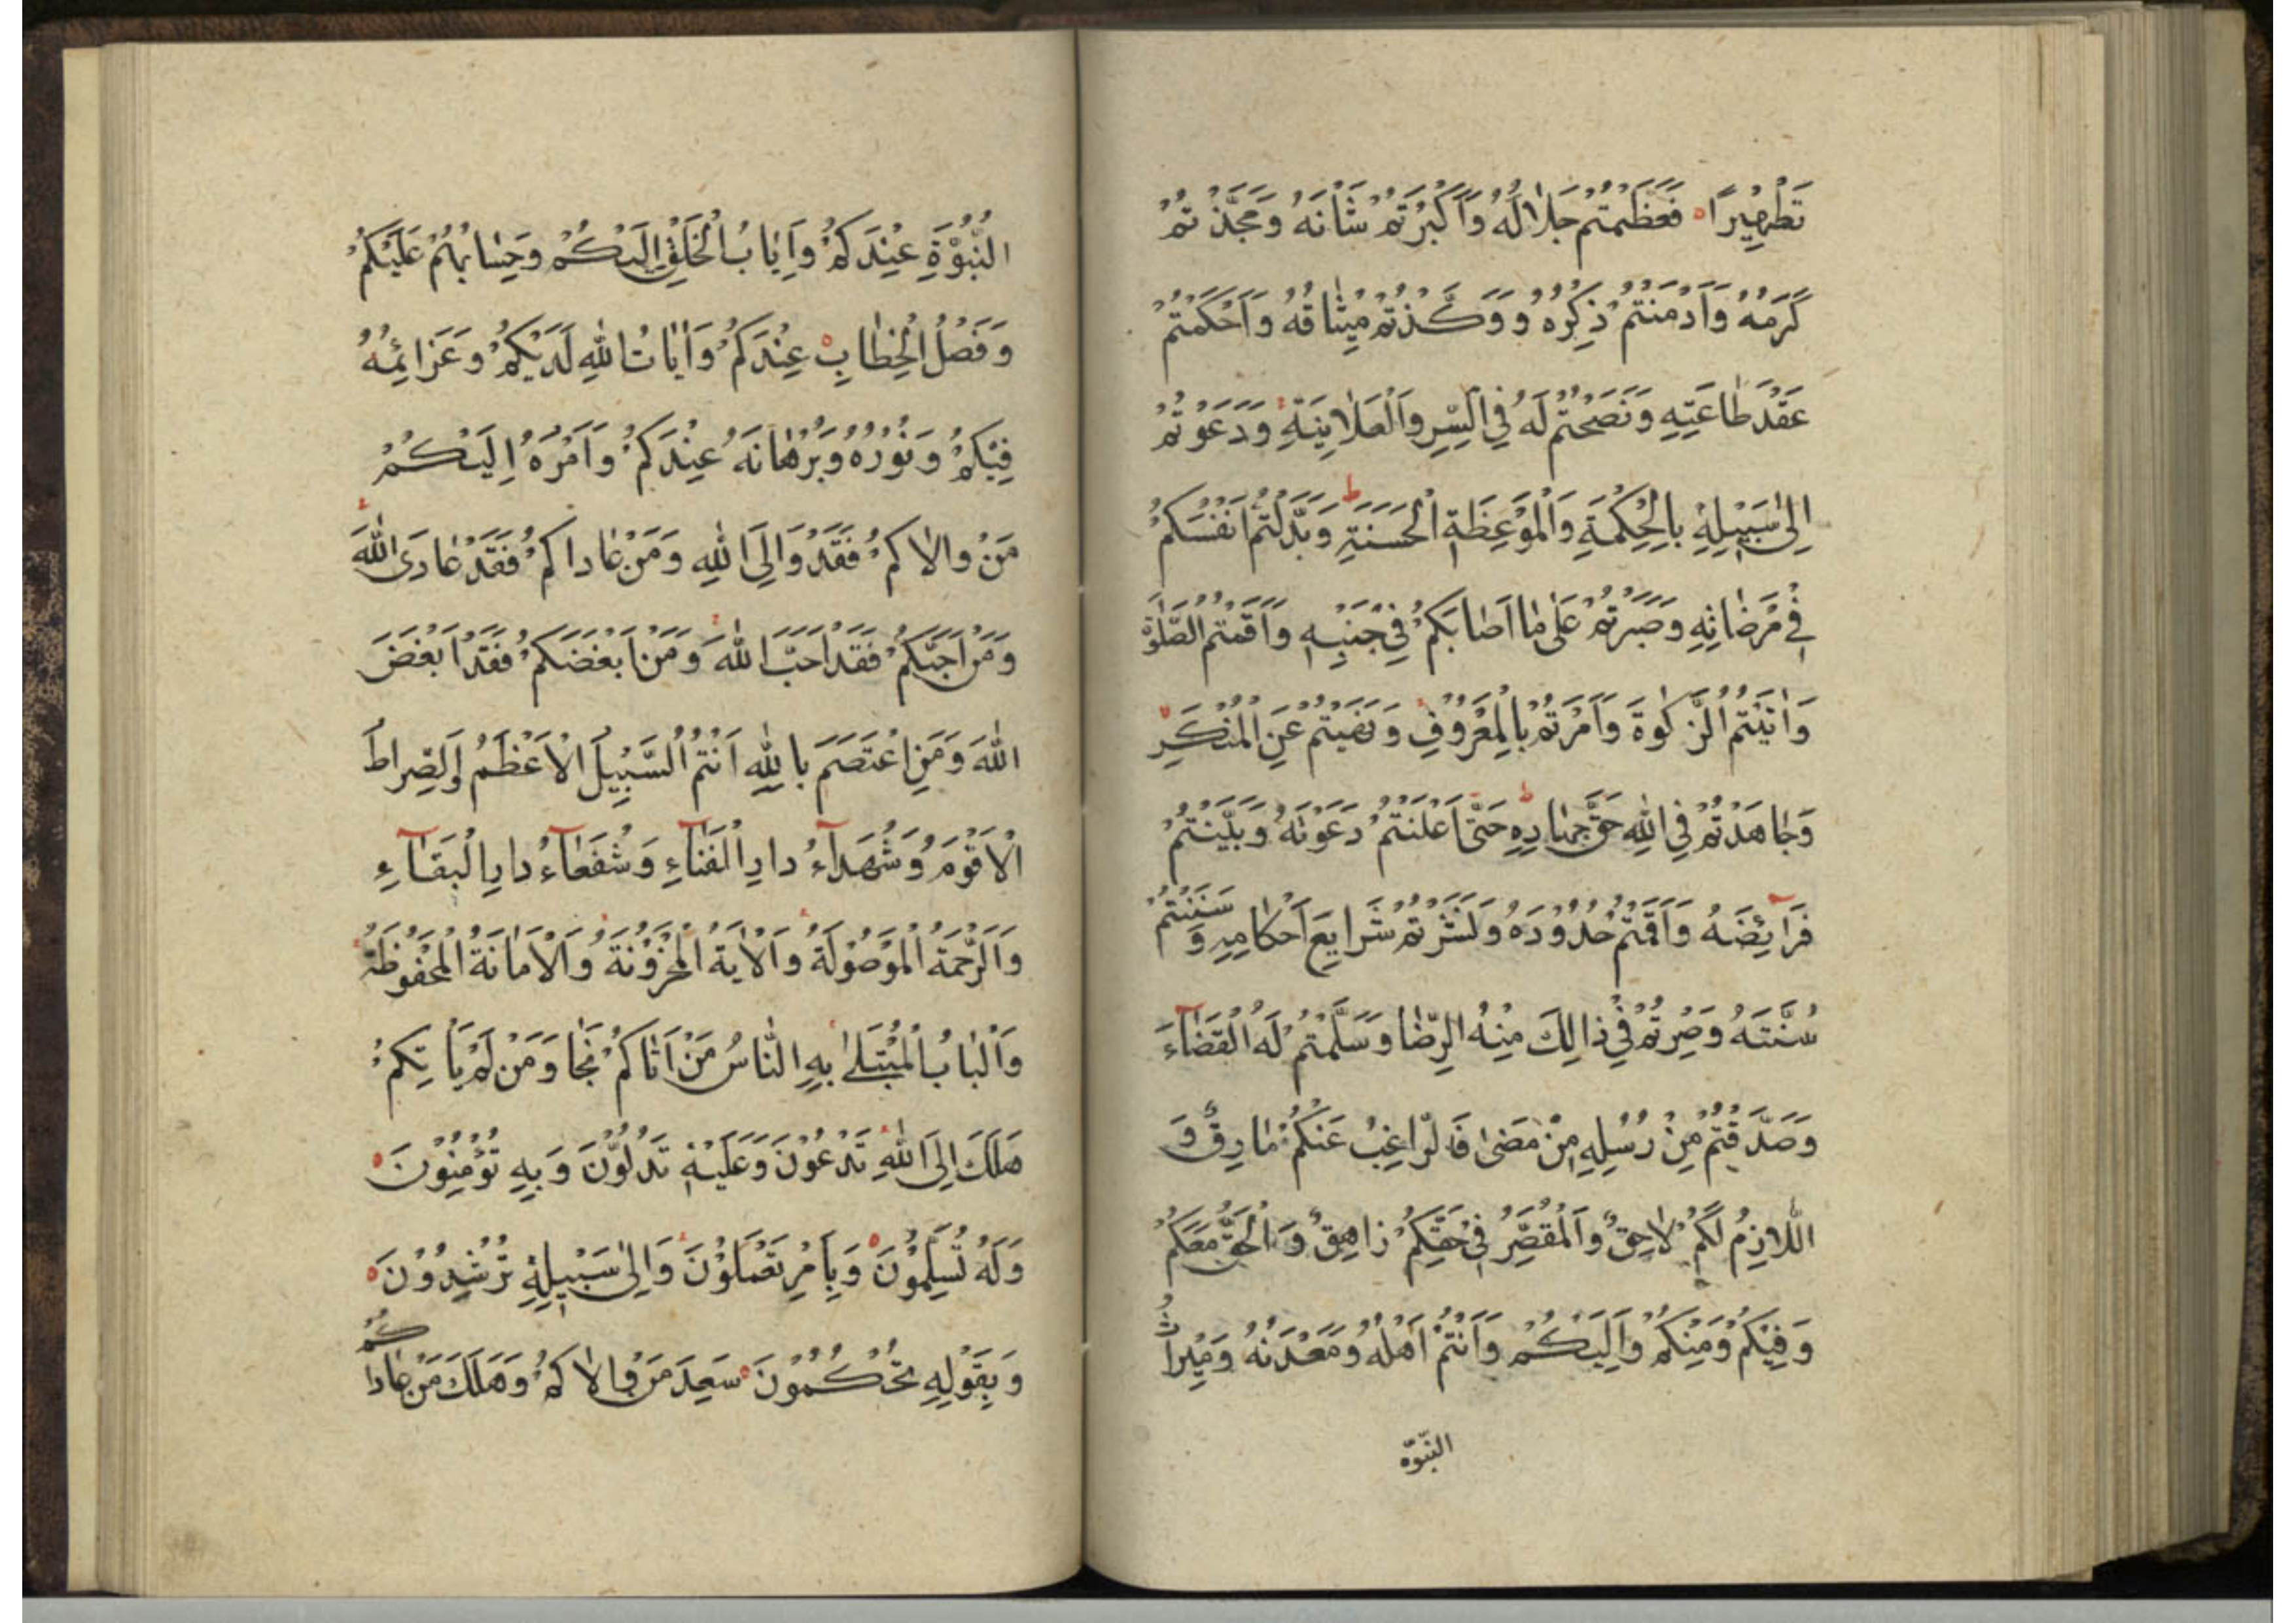 تَطْهِيرًا فَعَظَّمْتُمْ جَلَالَهُ وَاَكْبَرْتُمْ شَاْنَهُ وَمَجَّدْتُمْ
كَرَمَهُ وَاَدْمَنْتُمْ ذِكْرَهُ وَوَكَّدْتُمْ مِيْثَاقَهُ وَاَحْكَمْتُمْ
عَقْدَ طَاعَتِهِ وَنَصَحْتُمْ لَهُ فِي السِّرِ وَالْعَلَانِيَةِ وَدَعَوْتُمْ
اِلىٰ سَبِيْلِهِ بِالْحِكْمَةِ وَالْمَوْعِظَةِ الْحَسَنَةِ ط وَبَذَلْتُمْ اَنْفُسَكُمْ
فِيْ مَرْضَاتِهِ وَصَبَرْتُمْ عَلىٰ مَا اَصَابَكُمْ فِيْ جَنْبِهِ وَاَقَمْتُمُ الصَّلٰوةَ
وَاٰتَيْتُمُ الزَّكٰوةَ وَاَمَرْتُمْ بِالْمَعْرُوفِ وَنَهَيْتُمْ عَنِ الْمُنْكَرِ
وَجَاهَدْتُمْ فِي اللّٰهِ حَقَّ جِهَادِهِ ط حَتّٰى اَعْلَنْتُمْ دَعْوَتَهُ وَبَيَّنْتُمْ
فَرَآئِضَهُ وَاَقَمْتُمْ حُدُوْدَهُ وَنَشَرْتُمْ شَرَايِعَ اَحْكَامِهِ وَ سَنَنْتُمْ
سُنَّتَهُ وَصِرْتُمْ فِيْ ذَالِكَ مِنْهُ الرِّضَا وَسَلَّمْتُمْ لَهُ الْقَضَآءَ
وَصَدَّقْتُمْ مِنْ رُسُلِهِ مِنْ مَضىٰ فَالرَّاغِبُ عَنْكُمْ مَارِقٌ وَ
اللَّازِمُ لَكُمْ لَاحِقٌ وَالْمُقَصِّرُ فِيْ حَقِّكُمْ زَاهِقٌ وَالْحَقُّ مَعَكُمْ
وَفِيْكُمْ وَمِنْكُمْ وَاِلَيْكُمْ وَاَنْتُمْ اَهْلُهُ وَمَعْدَنُهُ وَمِيْرَاثُ
النبّوّه
النُّبُوَّةِ عِنْدَكُمْ وَاِيَابُ الْخَلْقِ اِلَيْكُمْ وَحِسَابُهُمْ عَلَيْكُمْ
وَفَصْلُ الْخِطَابِ عِنْدَكُمْ وَاٰيَاتُ اللّٰهِ لَدَيْكُمْ وَعَزَائِمُهُ
فِيْكُمْ وَنُوْرُهُ وَبُرْهَانَهُ عِنْدَكُمْ وَاَمْرُهُ اِلَيْكُمْ
مَنْ وَالَاكُمْ فَقَدْ وَالَى اللّٰهِ وَمَنْ عَادَاكُمْ فَقَدْ عَادَى اللّٰهَ
وَمَنْ اَحَبَّكُمْ فَقَدْ اَحَبَّ اللّٰهَ وَمَنْ اَبْغَضَكُمْ فَقَدْ اَبْغَضَ
اللّٰهَ وَمَنِ اعْتَصَمَ بِاللّٰهِ اَنْتُمُ السَّبِيْلُ الْاَعْظَمُ وَالصِّرَاطُ
الْاَقْوَمُ وَشُهَدَآءُ دَارِ الْفَنَآءِ وَشُفَعَآءُ دَارِ الْبَقَآءِ
وَالرَّحْمَةُ الْمَوْصُوْلَةُ وَالْاٰيَةُ الْمَخْزُوْنَةُ وَالْاَمَانَةُ الْمَحْفُوْظَةُ
وَالْبَابُ الْمُبْتَلىٰ بِهِ النَّاسُ مَنْ اَتَاكُمْ نَجَا وَمَنْ لَمْ يَاْتِكُمْ
هَلَكَ اِلَى اللّٰهِ تَدْعُوْنَ وَعَلَيْهِ تَدُلُّوْنَ وَبِهِ تُؤْمِنُوْنَ
وَلَهُ تُسَلِّمُوْنَ وَبِاَمْرِ تَعْمَلُوْنَ وَاِلىٰ سَبِيْلِهِ تُرْشِدُوْنَ
وَبِقَوْلِهِ تَحْكُمُوْنَ سَعِدَ مَنْ وَالَاكُمْ وَهَلَكَ مَنْ عَادَاكُمْ